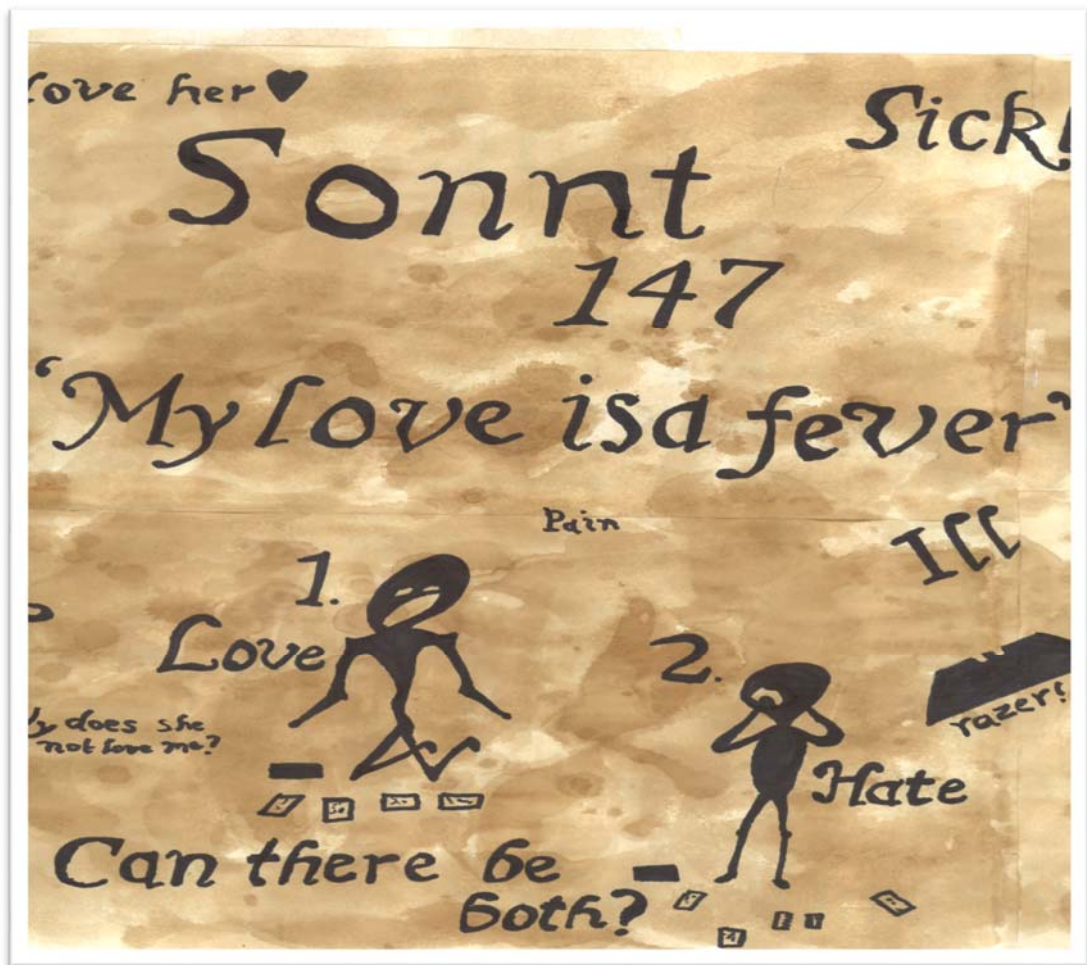 love her
Sick!
Sonnt
147
‘My love isa fever’
Pain
Ill
1.
Love
2.
razer!
does she
not love me?
Hate
Can there be
both?